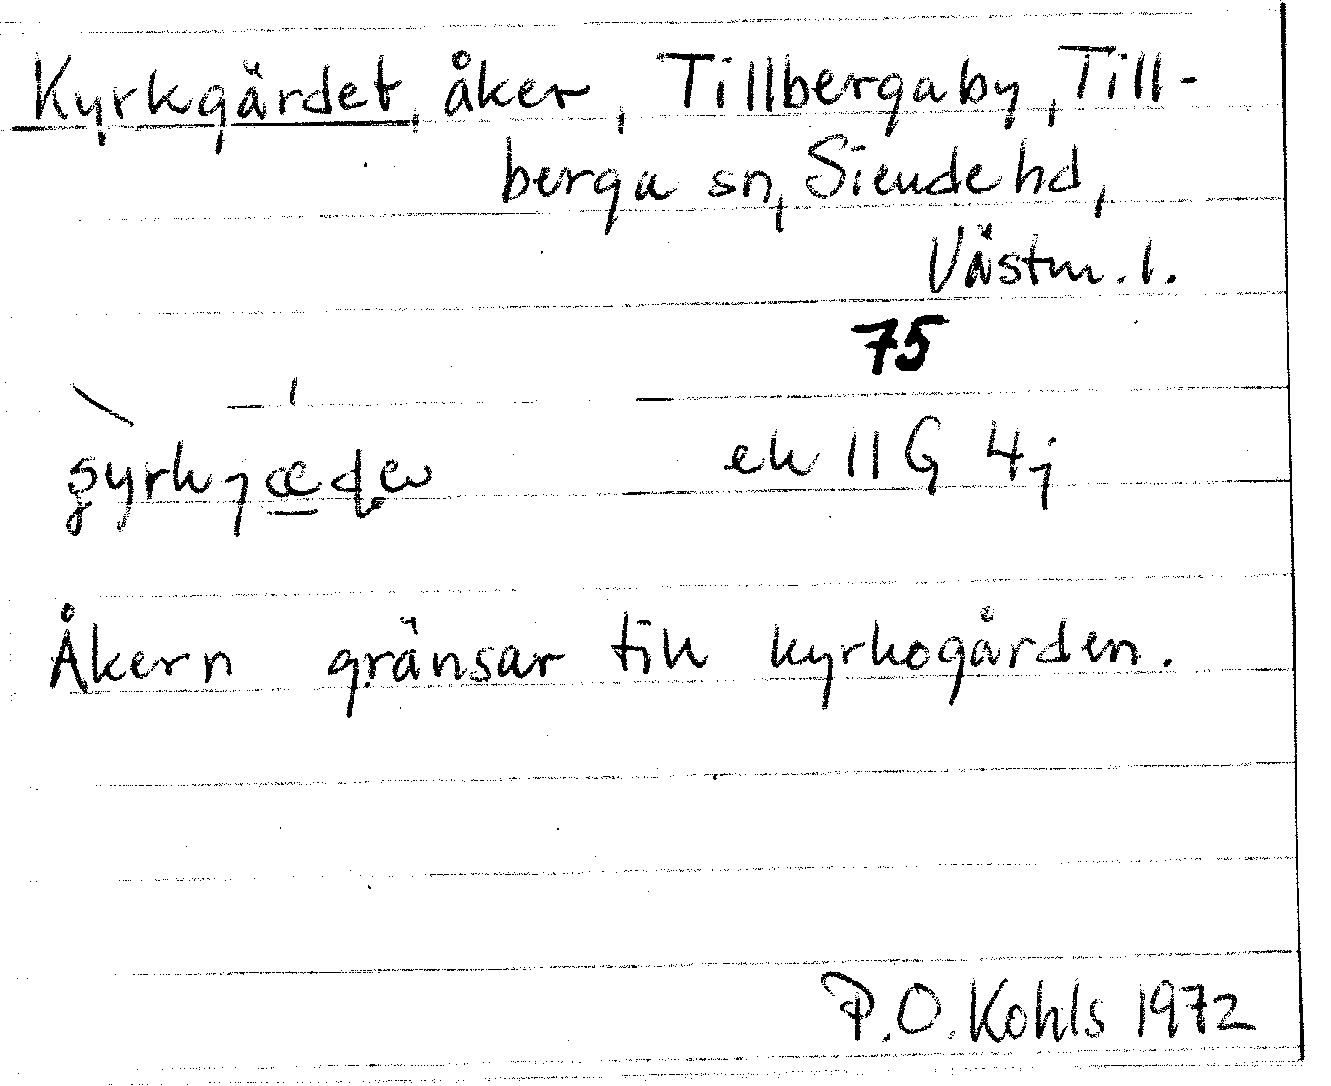 Kyrkgärdet, åker, Tillbergaby, Till-
berga sn, Siende hd,
Västm. l.
75
ek 11 G 4j
Åkern gränsar till kyrkogården.
P.O. Kohls 1972